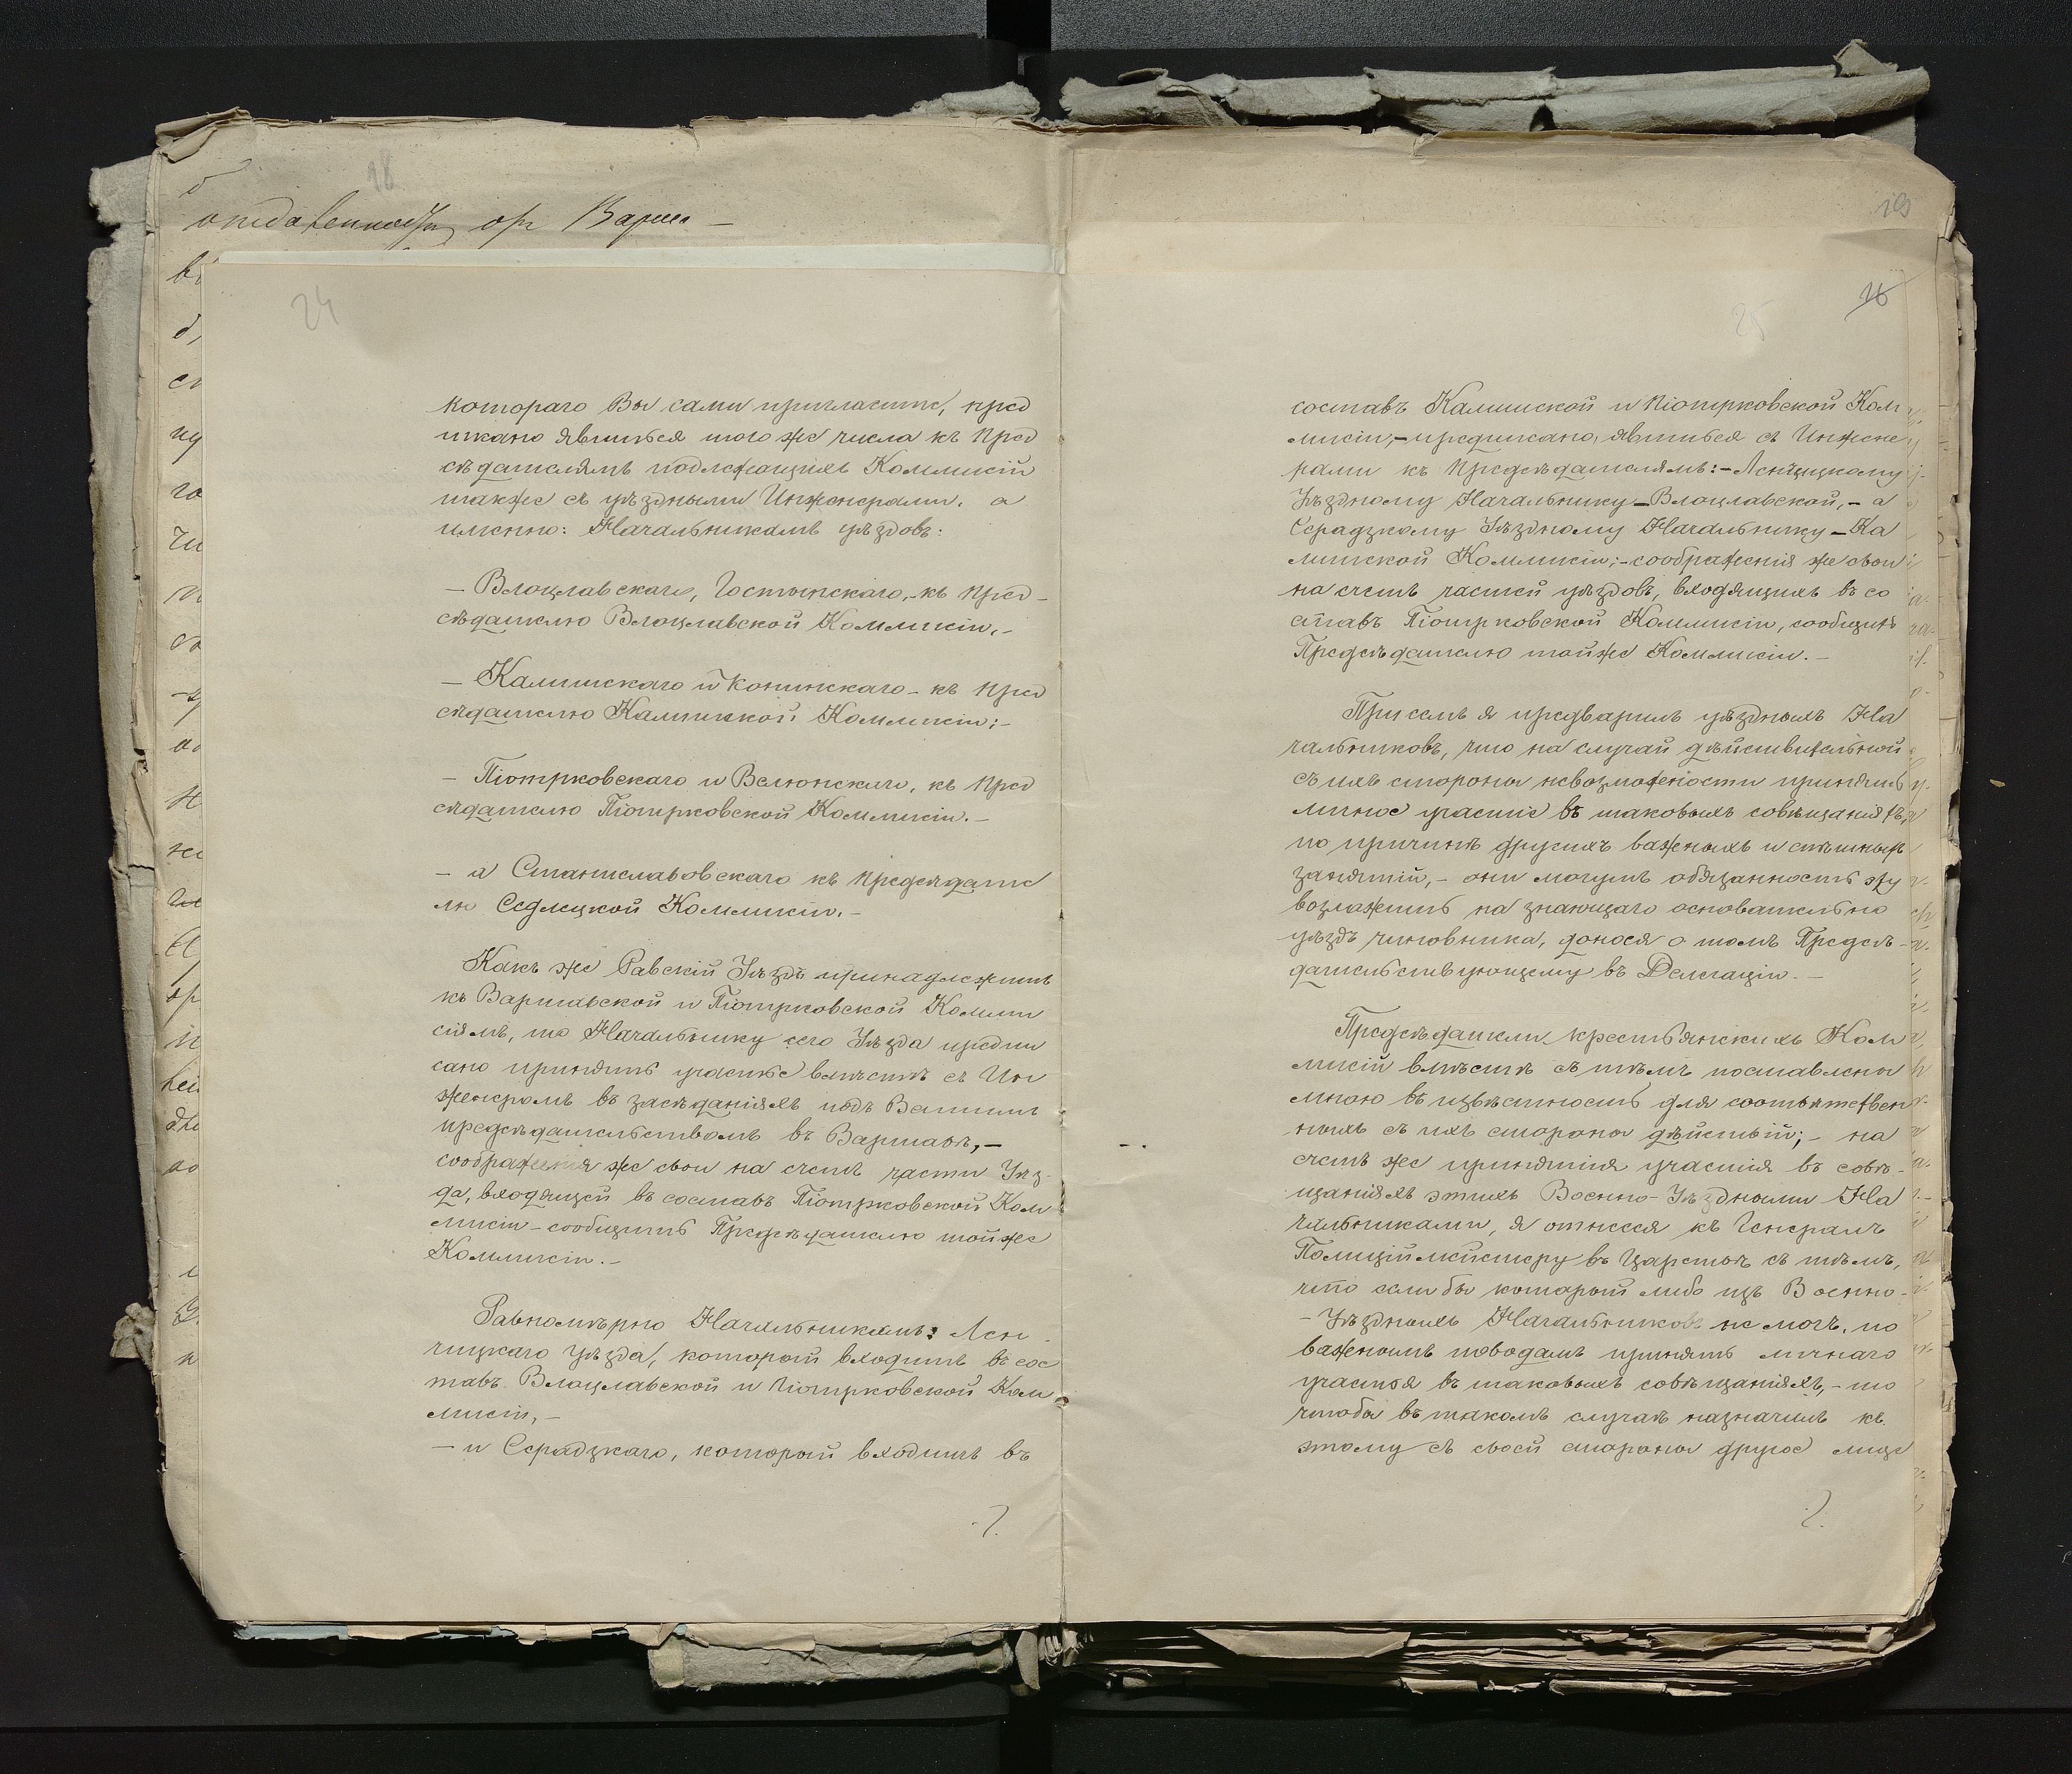 18
24
котораго Вы сами пригласите, пред
писано явиться того же числа къ Пред
сѣдателямъ подлежащихъ Коммисій
также съ уѣздными Инженерами. а
именно: Начальникамъ уѣздовъ:
— Влоцлавскаго, Гостынскаго, - къ Пред -
сѣдателю Влоцлавской Коммисіи, -
— Калишскаго и Конинскаго - къ Пред
сѣдателю Калишской Коммисіи; -
— Піотрковскаго и Велюнскаго, къ Пред
сѣдателю Піотрковской Коммисіи. -
— а Станиславовскаго къ Предсѣдате
лю Седлецкой Коммисіи. -
Какъ же Равскій Уѣздъ принадлежитъ
къ Варшавской и Піотрковской Комми
сіямъ, то Начальнику сего Уѣзда предпи
сано принять участіе вмѣстѣ съ Ин
женеромъ въ засѣданіяхъ подъ Вашимъ
предсѣдательствомъ въ Варшавѣ, —
соображенія же свои на счетъ части Уѣз-
да, входящей въ составъ Піотрковской Ком
мисіи - сообщить Предсѣдателю тойже
Коммисіи. -
Равномѣрно Начальникамъ: Лен -
чицкаго Уѣзда, который входитъ въ сос
тавъ Влоцлавской и Піотрковской Ком
мисіи, -
— и Серадзкаго, который входитъ въ
19
25
16
составъ Калишской и Піотрковской Ком
мисіи, - предписано, явиться съ Инжене
рами къ Предсѣдателямъ: - Ленчицкому
Уѣздному Начальнику - Влоцлавской, - а
Серадзкому Уѣздному Начальнику - Ка
лишской Коммисіи; - соображенія же свои
на счетъ частей уѣздовъ, входящихъ въ со
ставъ Піотрковской Коммисіи, сообщить
Предсѣдателю тойже Коммисіи. -
При семъ я предварилъ уѣздныхъ На
чальниковъ, что на случай дѣйствительной
съ ихъ стороны невозможности принять
личное участіе въ таковыхъ совѣщаніяхъ,
по причинѣ другихъ важныхъ и спѣшныхъ
занятій, - они могутъ обязанность эту
возложить на знающаго основательно
уѣздъ чиновника, донося о томъ Предсѣ -
дательствующему въ Делегаціи. -
Предсѣдатели крестьянскихъ Ком
мисій вмѣстѣ съ тѣмъ поставлены
мною въ извѣстность для соотвѣтствен
ныхъ съ ихъ стороны дѣйствій; - на
счетъ же принятія участія въ совѣ -
щаніяхъ этихъ Военно - Уѣздными На
чальниками, я отнесся къ Генералъ
Полиціймейстеру въ Царствѣ съ тѣмъ,
что если бы который либо изъ Военно -
- Уѣздныхъ Начальниковъ не могъ, по
важнымъ поводамъ принять личнаго
участія въ таковыхъ совѣщаніяхъ, - то
чтобы въ такомъ случаѣ назначилъ къ
этому съ своей стороны другое лице